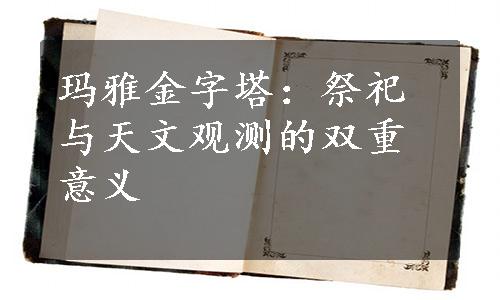 玛雅金字塔：祭祀
与天文观测的双重
意义